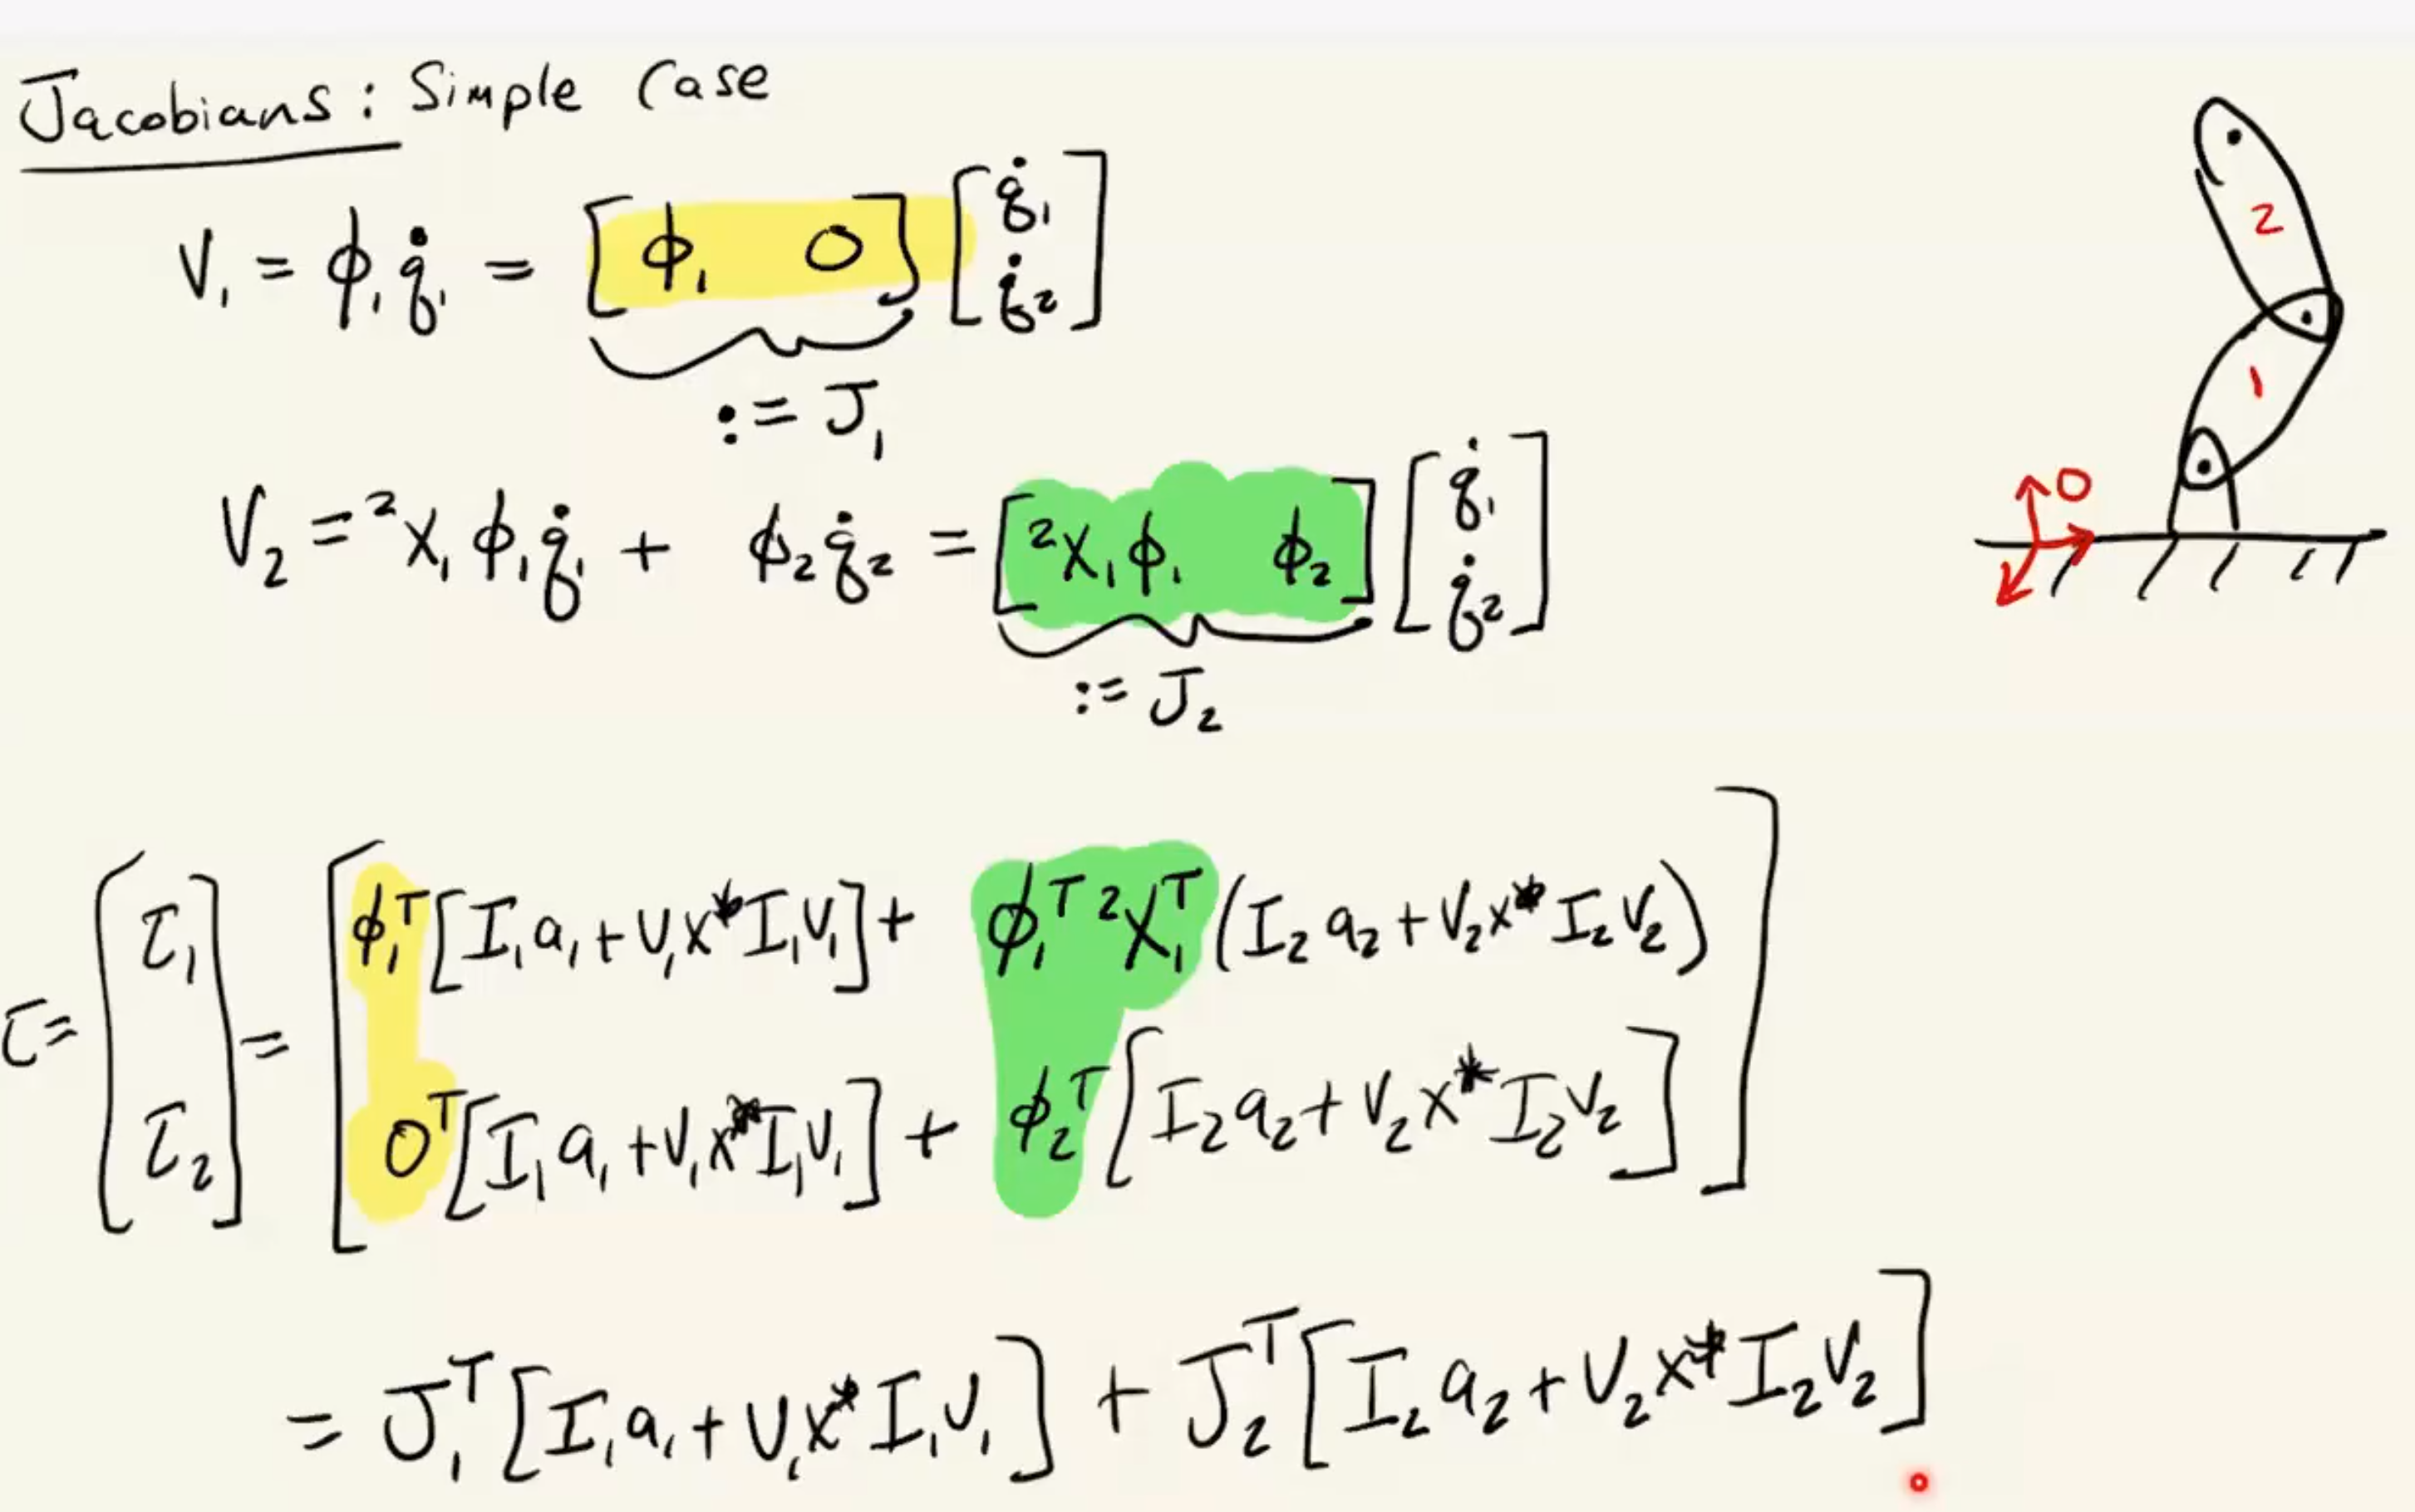 Jacobians: Simple Case
V₁ = ϕ₁q̇₁ = [ϕ₁ 0] [q̇₁ q̇₂]
:= J₁
V₂ = ²X₁ϕ₁q̇₁ + ϕ₂q̇₂ = [²X₁ϕ₁ ϕ₂] [q̇₁ q̇₂]
:= J₂
2
1
0
τ = [τ₁ τ₂] = [ϕ₁ᵀ[I₁a₁ + V₁×*I₁V₁] + ϕ₁ᵀ ²X₁ᵀ(I₂a₂ + V₂×*I₂V₂)
0ᵀ[I₁a₁ + V₁×*I₁V₁] + ϕ₂ᵀ[I₂a₂ + V₂×*I₂V₂]]
= J₁ᵀ[I₁a₁ + V₁×*I₁V₁] + J₂ᵀ[I₂a₂ + V₂×*I₂V₂]